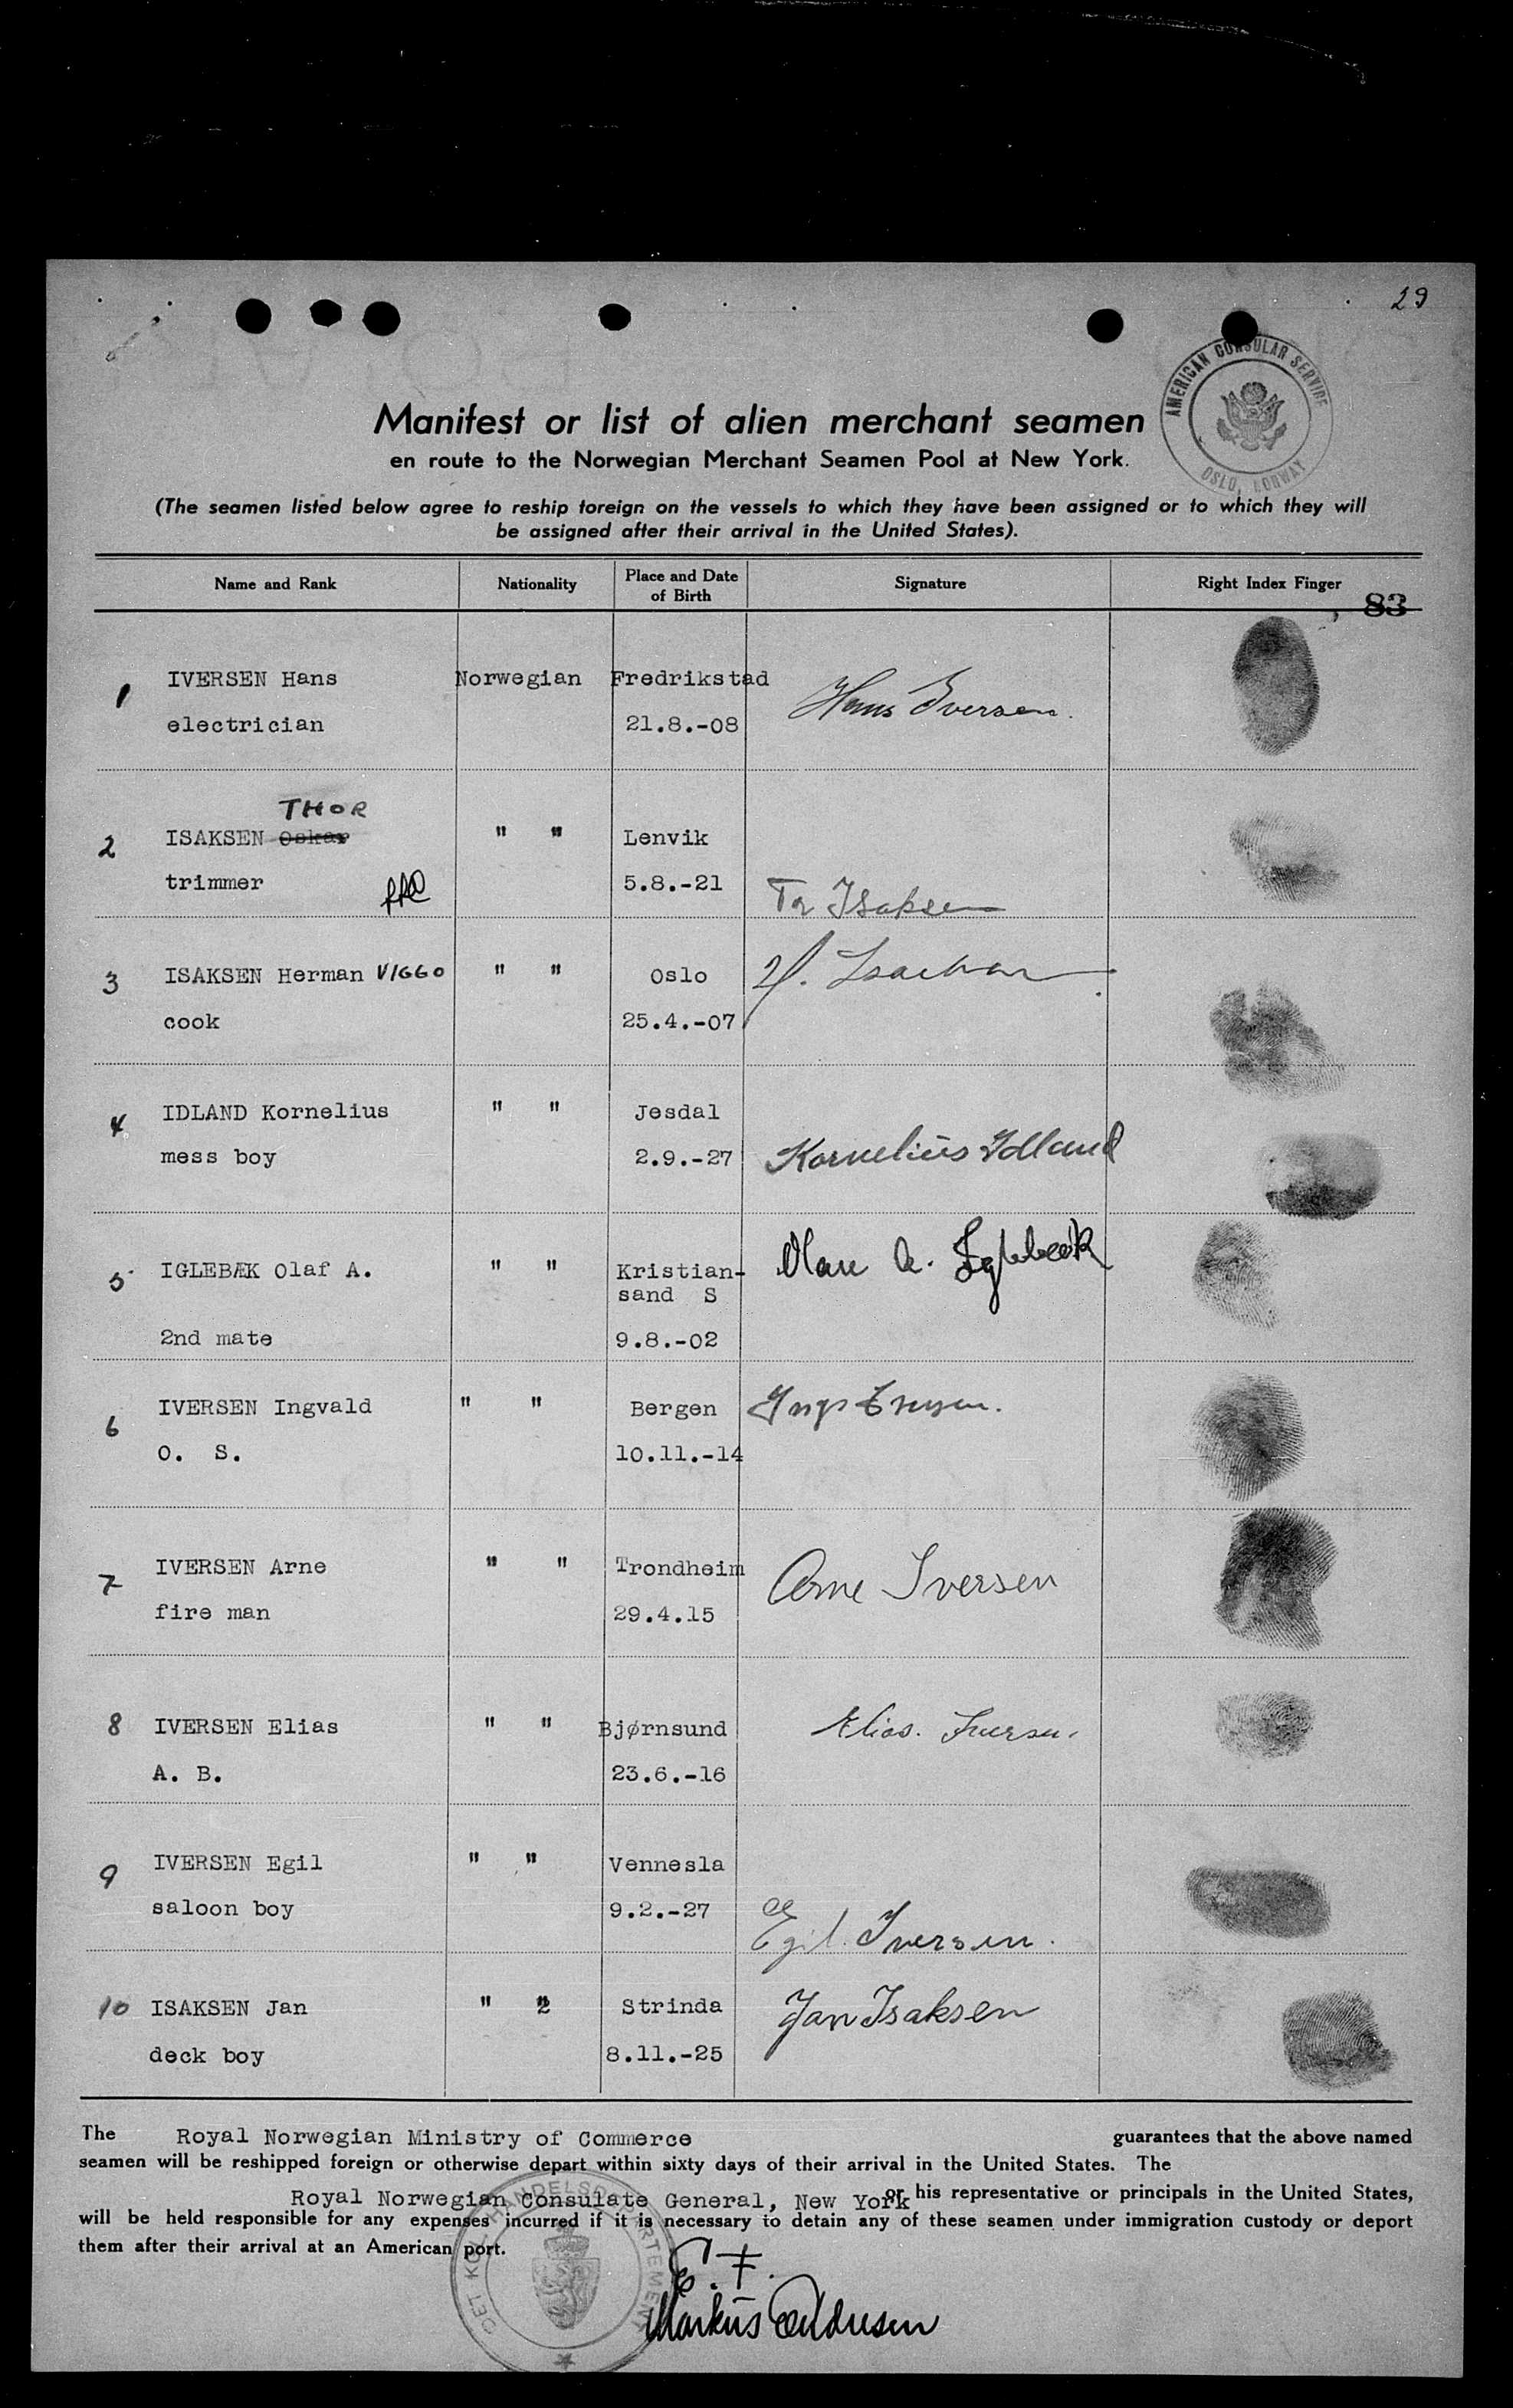 29
AMERICAN CONSULAR SERVICE
OSLO, NORWAY
Manifest or list of alien merchant seamen
en route to the Norwegian Merchant Seamen Pool at New York.
(The seamen listed below agree to reship foreign on the vessels to which they have been assigned or to which they will
be assigned after their arrival in the United States).
Name and Rank Nationality Place and Date of Birth Signature Right Index Finger
83
1 IVERSEN Hans Norwegian Fredrikstad Hans Iversen.
electrician 21.8.-08
THOR
2 ISAKSEN Oskar " " Lenvik
trimmer 5.8.-21 Isaksen
3 ISAKSEN Herman VIGGO " " Oslo H. Isachsen
cook 25.4.-07
4 IDLAND Kornelius " " Jesdal
mess boy 2.9.-27 Kornelius Idland
5 IGLEBÆK Olaf A. " " Kristian- A. Iglebæk
sand S
2nd mate 9.8.-02
6 IVERSEN Ingvald " " Bergen
O. S. 10.11.-14
7 IVERSEN Arne " " Trondheim Arne Iversen
fire man 29.4.15
8 IVERSEN Elias " " Bjørnsund Elias. Iversen.
A. B. 23.6.-16
9 IVERSEN Egil " " Vennesla
saloon boy 9.2.-27 Egil. Iversen.
10 ISAKSEN Jan " 2 Strinda Jan Isaksen
deck boy 8.11.-25
The Royal Norwegian Ministry of Commerce guarantees that the above named
seamen will be reshipped foreign or otherwise depart within sixty days of their arrival in the United States. The
Royal Norwegian Consulate General, New York or his representative or principals in the United States,
will be held responsible for any expenses incurred if it is necessary to detain any of these seamen under immigration custody or deport
them after their arrival at an American port.
DET KGL. HANDELSDEPARTEMENT
E. F.
Markus Andresen